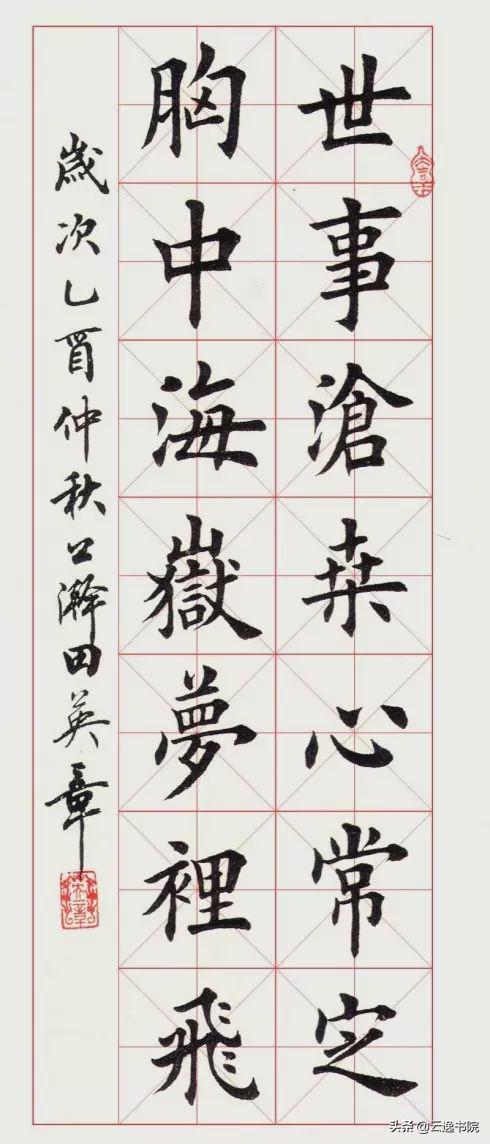 世事滄桒心常定
胸中海嶽夢裡飛
歲次乙酉仲秋公瀚田英章
头条 @云逸书院